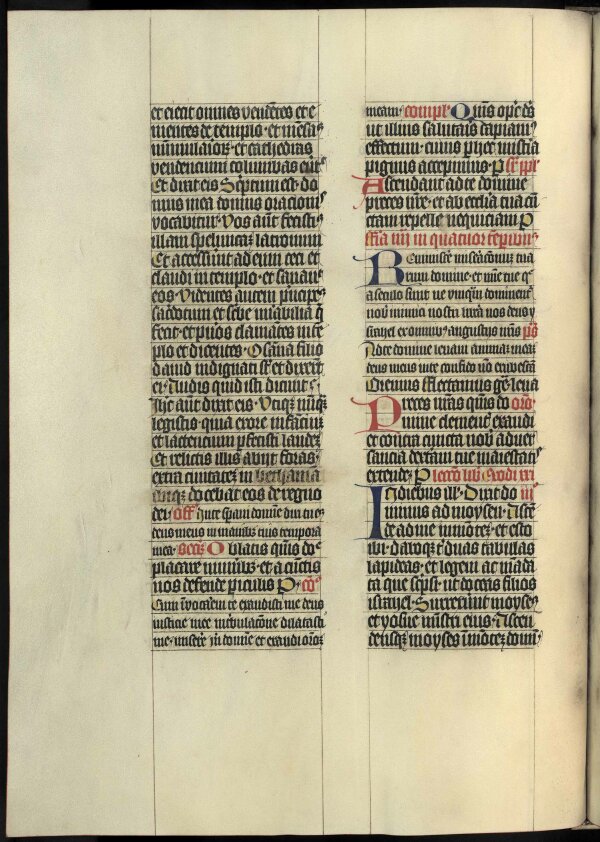 et eicit omnes vendẽtes et e
mentes de templo · et mẽsas
nũmulariorũ · et cathedras
vendencium columbas eũtit
Et dixit eis Scriptum est · do
mus mea domus oracionis
vocabitur · Vos aũt fecistis
illam speluncam latronum
Et accesserũt ad eum ceci et
claudi in templo · et sanauit
eos · Videntes autem principes
sacerdotum et scribe mirabilia q̃
fecit · et pueros clamãtes in tẽ
plo et dicentes · Osanna filio
dauid indignati sũt et dixerũt
ei · Audis quid isti dicunt ·
Ihc aũt dixit eis · Vtiqz nũqz
legistis quia ex ore infanciũ
et lactencium perfecisti laudẽ
Et relictis illis abijt foras ·
extra ciuitatem in bethania
ibiqz docebat eos de regno
dei · Off In te speraui domine dixi tu es
deus meus in manibus tuis tempora
mea · Secr̃ Oblatis quis do
placare munibz · et a cũctis
nos defende periculis P · Cõ
Cum inuocarem te exaudisti me deus
iusticie mee in tribulacõne dilatasti
me · miserere mi domine et exaudi oronẽ
meam · compl̃ Quis oĩps d̃s
ut illius salutaris capiamus
effectum · cuius per hec misteria
pignus accepimus · P Sr̃ pplm
Ascendant ad te domine
preces nr̃e · et ab ecclia tua cũ
ctam repelle nequiciam P
fr̃ia iiij in quatuor tẽporibus
Reminiscere miseracionũ tua
rum domine · et mie tue q̃
a seculo sunt ne vnquã dominent̃
nob̃ inimici nostri libera nos deus i
srahel ex omnibz angustijs nr̃is ps
Ad te domine leuaui animam meam
deus meus in te confido nõ erubescã
Oremus Flectamus gẽ · leua
Preces nr̃as quis do orõ
mine clement̃ exaudi
et contra cuncta nob̃ aduer
sancia dexteram tue maiestatis
extende · P lecco lib̃ Exodi xxi
In diebus ill̃ · Dixit do iiij
minus ad moysen · Ascẽ
de ad me in montẽ · et esto
ibi · daboqz t̃ duas tabulas
lapideas · et legem ac mãda
ta que scripsi · ut doceas filios
israhel · Surrexerunt moyses
et yosue ministri eius · Ascen
densqz moyses in mõtẽ domĩ